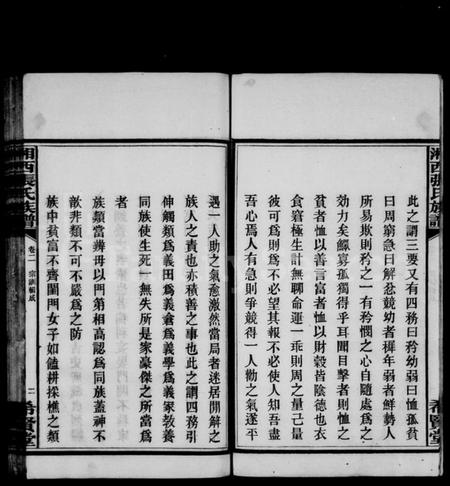 湘西張氏族譜
此之謂三要又有四務曰矜幼弱曰恤孤貧
曰周窮急曰解忿競幼者穉年弱者鮮勢人
所易欺則矜之一有矜憫之心自隨處為之
効力矣鰥寡孤獨得乎耳聞目擊者則恤之
貧者恤以善言富者恤以財穀皆陰德也衣
食窘極生計無聊命運一乖則周之量己量
彼可為則為不必望其報不必使人知吾盡
吾心焉人有急則爭競得一人勸之氣遂平
希賢堂
遇一人助之氣愈激然當局者迷居間解之
族人之責也亦積善之事也此之謂四務引
伸觸類為義田為義倉為義學為義冢教養
同族使生死一無失所是家豪傑之所當為
者
族類當辨毋以門第相高認為同族蓋神不
歆非類不可不嚴為之防
族中貧富不齊閨門女子如饁耕採樵之類
湘西張氏族譜
卷二
二
希賢堂